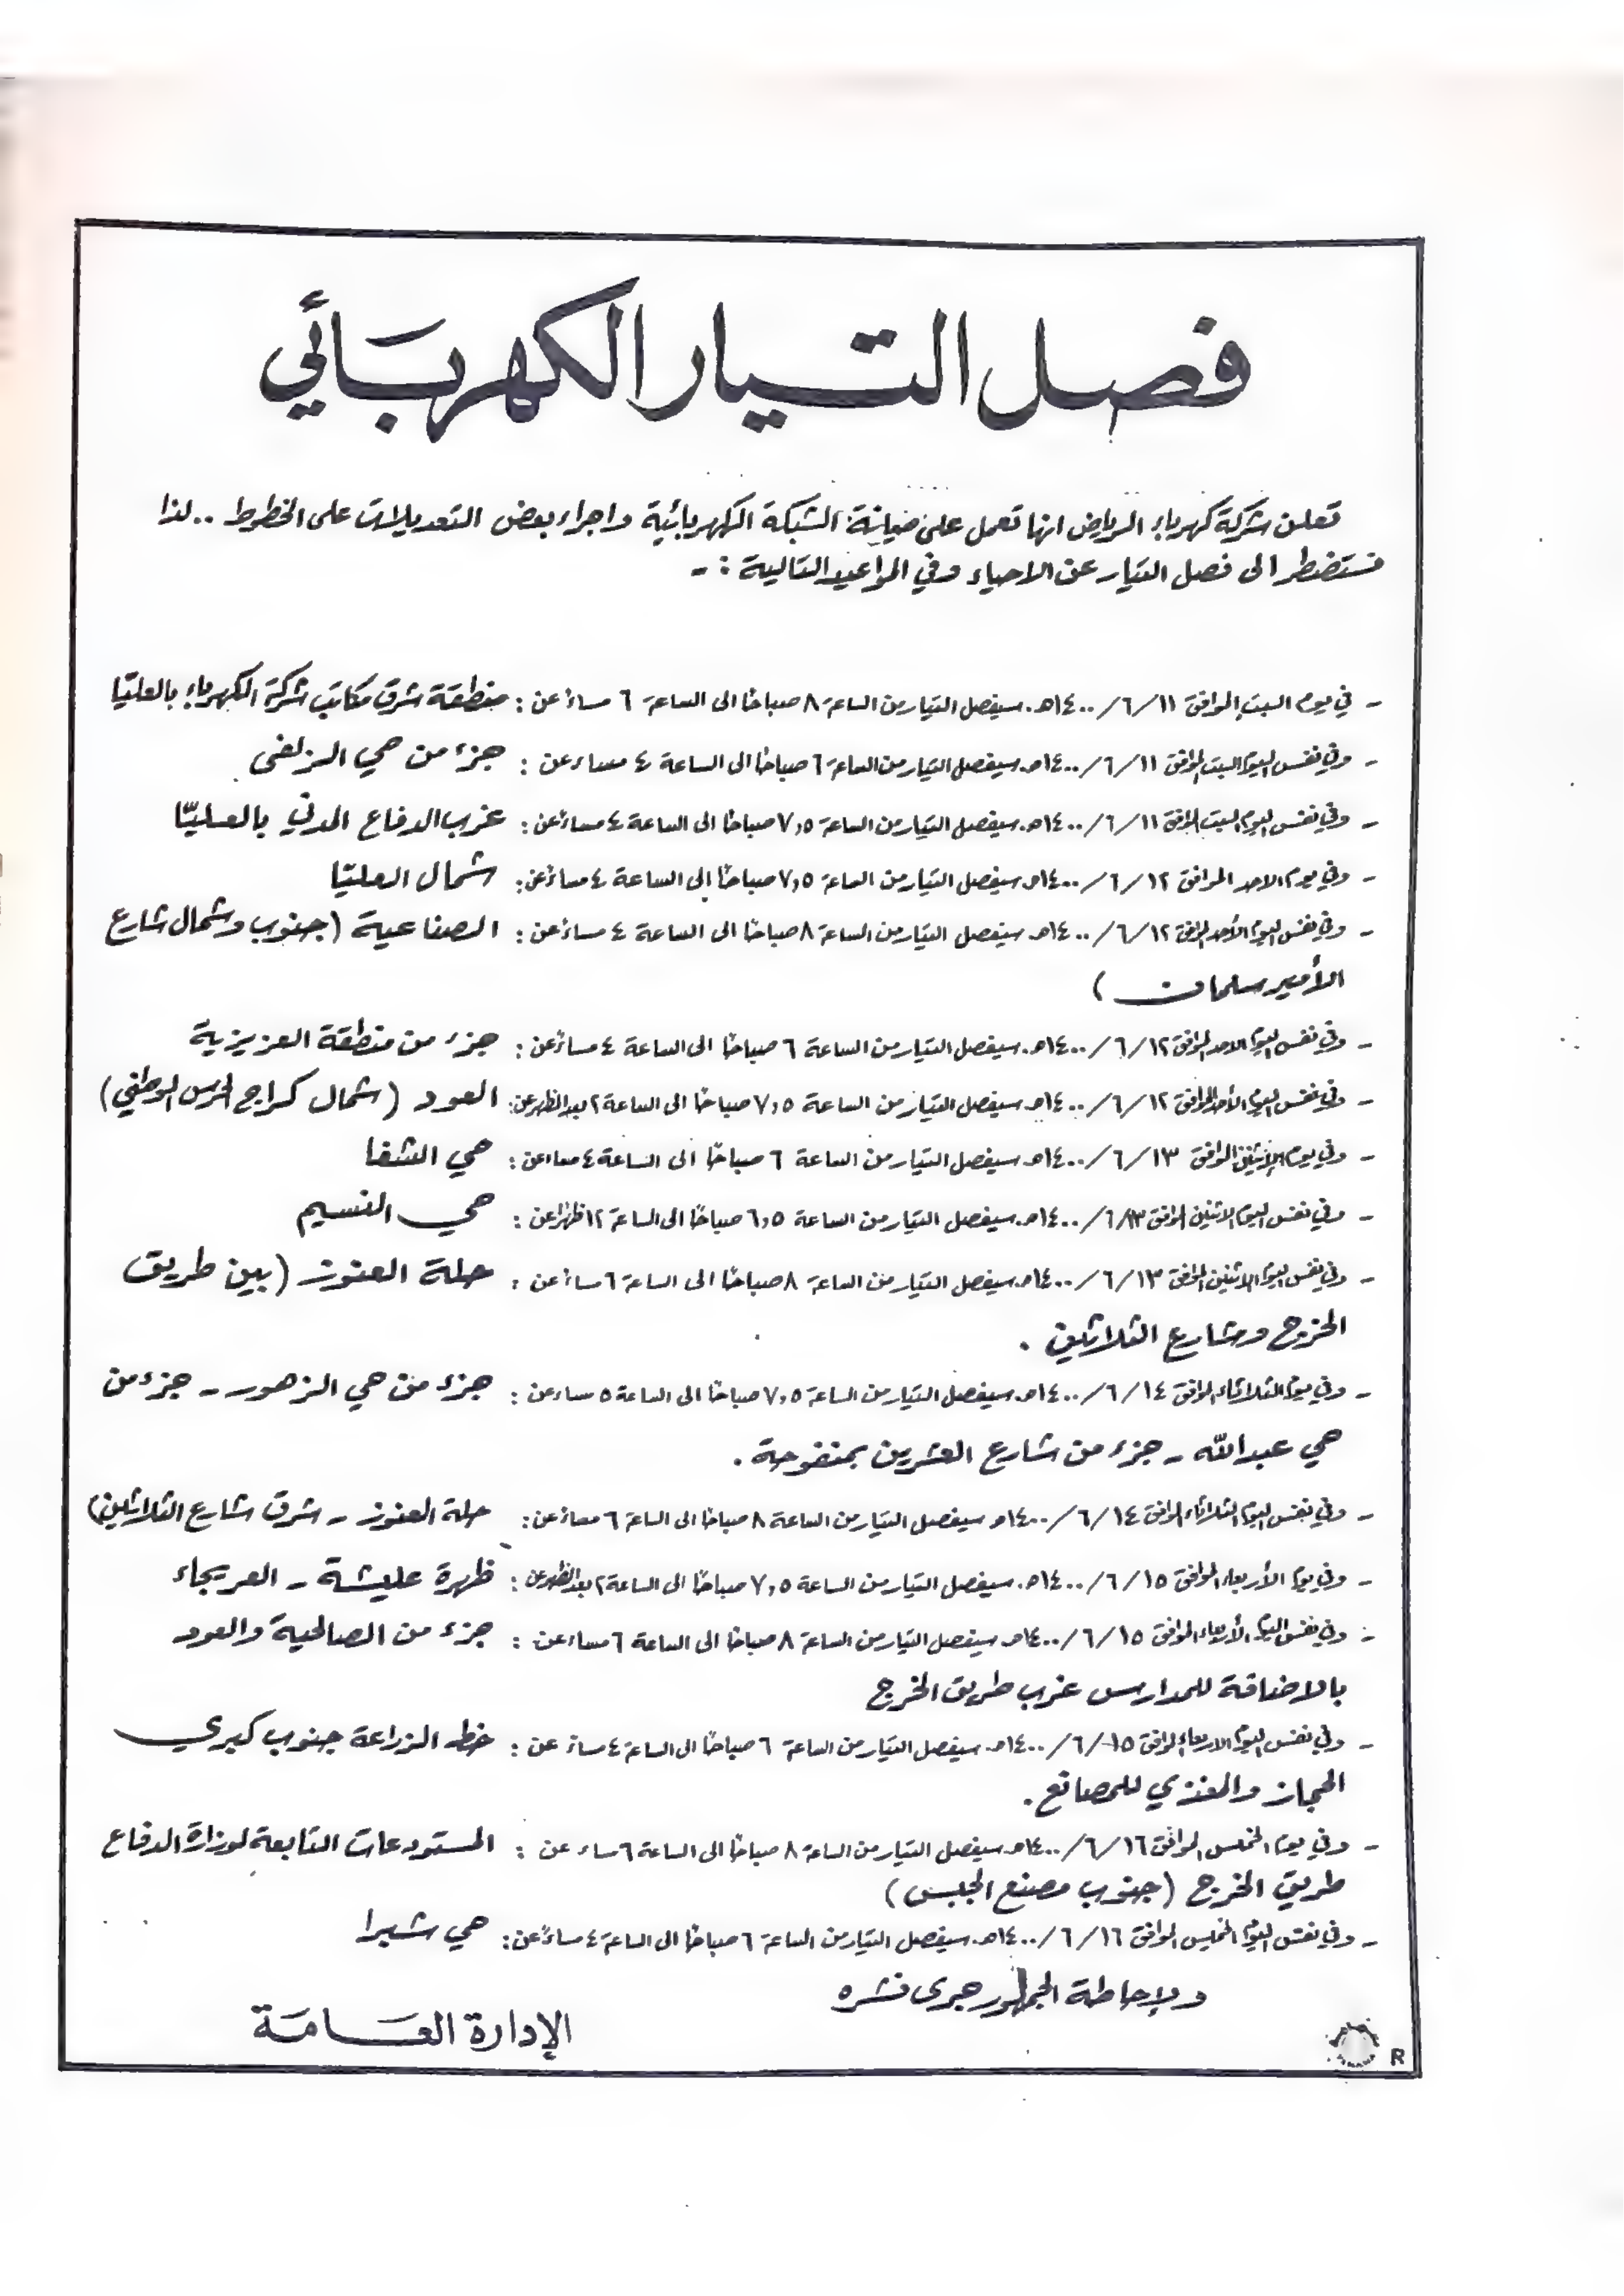 فصل التيار الكهربائي
تعلن شركة كهرباء الرياض انها تعمل على صيانة الشبكة الكهربائية واجراء بعض التعديلات على الخطوط .. لذا
فستضطر الى فصل التيار عن الاحياء وفي المواعيد التالية : -
- في يوم السبت الموافق ١٤٠٠/٦/١١هـ. سيفصل التيار من الساعة ٨ صباحًا الى الساعة ٦ مساءً عن : منطقة شرق مكاتب شركة الكهرباء بالعليّا
- وفي نفس اليوم السبت الموافق ١٤٠٠/٦/١١هـ. سيفصل التيار من الساعة ٦ صباحًا الى الساعة ٤ مساء عن : جزء من حي الزلفى .
- وفي نفس اليوم السبت الموافق ١٤٠٠/٦/١١هـ. سيفصل التيار من الساعة ٧,٥ صباحًا الى الساعة ٤ مساءً عن : غرب الدفاع المدني بالعليّا
- وفي يوم الاحد الموافق ١٤٠٠/٦/١٢هـ. سيفصل التيار من الساعة ٧,٥ صباحًا إلى الساعة ٤ مساءً عن : شمال العليّا
- وفي نفس اليوم الأحد الموافق ١٤٠٠/٦/١٢هـ. سيفصل التيار من الساعة ٨ صباحًا الى الساعة ٤ مساءً عن : الصناعية (جنوب وشمال شارع
الأمير سلمان )
- وفي نفس اليوم الاحد الموافق ١٤٠٠/٦/١٢هـ. سيفصل التيار من الساعة ٦ صباحًا الى الساعة ٤ مساءً عن : جزء من منطقة العزيزية
- وفي نفس اليوم الأحد الموافق ١٤٠٠/٦/١٢هـ. سيفصل التيار من الساعة ٧,٥ صباحًا الى الساعة ٢ بعد الظهر عن : العود (شمال كراج الحرس الوطني)
- وفي يوم الإثنين الموافق ١٤٠٠/٦/١٣هـ. سيفصل التيار من الساعة ٦ صباحًا الى الساعة ٤ مساء عن : حي الشفا
- وفي نفس اليوم الاثنين الموافق ١٤٠٠/٦/١٣هـ. سيفصل التيار من الساعة ٦,٥ صباحًا الى الساعة ١٢ ظهرًا عن : حي النسيم
- وفي نفس اليوم الاثنين الموافق ١٤٠٠/٦/١٣هـ. سيفصل التيار من الساعة ٨ صباحًا الى الساعة ٦ مساءً عن : حلة العنوز (بين طريق
الخروج وشارع الثلاثين .
- وفي يوم الثلاثاء الموافق ١٤٠٠/٦/١٤هـ. سيفصل التيار من الساعة ٧,٥ صباحًا الى الساعة ٥ مساء عن : جزء من حي الزهور - جزء من
حي عبدالله - جزء من شارع العشرين بمنفوحة .
- وفي نفس اليوم الثلاثاء الموافق ١٤٠٠/٦/١٤هـ سيفصل التيار من الساعة ٨ صباحًا الى الساعة ٦ مساءً عن : حلة العنوز - شرق شارع الثلاثين)
- وفي يوم الأربعاء الموافق ١٤٠٠/٦/١٥هـ. سيفصل التيار من الساعة ٧,٥ صباحًا الى الساعة ٢ بعد الظهر عن : ظهرة عليشة - العريجاء
- وفي نفس اليوم الأربعاء الموافق ١٤٠٠/٦/١٥هـ. سيفصل التيار من الساعة ٨ صباحًا الى الساعة ٦ مساء عن : جزء من الصالحية والعود
بالاضافة للمدارس غرب طريق الخرج
- وفي نفس اليوم الاربعاء الموافق ١٤٠٠/٦/١٥هـ. سيفصل التيار من الساعة ٦ صباحًا الى الساعة ٤ مساءً عن : خط الزراعة جنوب كبري
الحجاز والمغذي للمصانع .
- وفي يوم الخميس الموافق ١٤٠٠/٦/١٦هـ. سيفصل التيار من الساعة ٨ صباحًا الى الساعة ٦ مساء عن : المستودعات التابعة لوزارة الدفاع
طريق الخرج (جنوب مصنع الجبس)
- وفي نفس اليوم الخميس الموافق ١٤٠٠/٦/١٦هـ. سيفصل التيار من الساعة ٦ صباحًا الى الساعة ٤ مساءً عن : حي شبرا
ولإحاطة الجمهور جرى نشره
الإدارة العامة
R